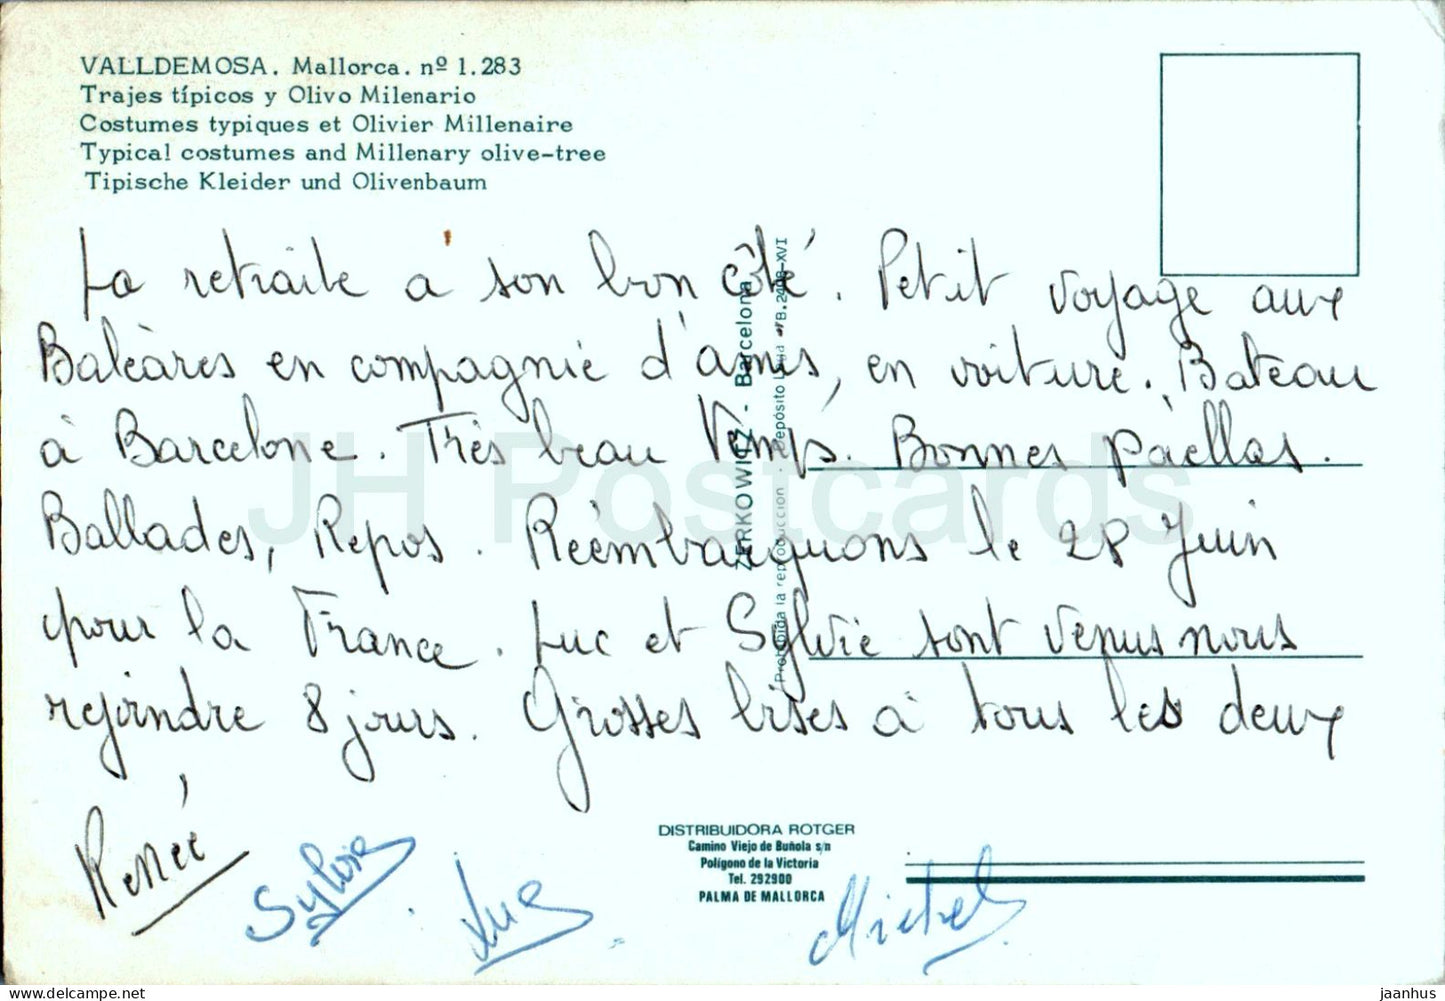 VALLDEMOSA. Mallorca. nº 1.283
Trajes típicos y Olivo Milenario
Costumes typiques et Olivier Millenaire
Typical costumes and Millenary olive-tree
Tipische Kleider und Olivenbaum
La retraite a son bon côté. Petit voyage aux
Baléares en compagnie d'amis, en voiture. Bateau
à Barcelone. Très beau temps. Bonnes paëllas.
Ballades, Repos. Réembarquons le 28 Juin
pour la France. Luc et Sylvie sont venus nous
rejoindre 8 jours. Grosses bises à tous les deux
Renée
Sylvie
Luc
Michel
ZERKOWITZ - Barcelona
Prohibida la reproduccion - Depósito Legal B.2408-XVI
DISTRIBUIDORA ROTGER
Camino Viejo de Buñola s/n
Polígono de la Victoria
Tel. 292900
PALMA DE MALLORCA
JH Postcards
www.delcampe.net
jaanhus